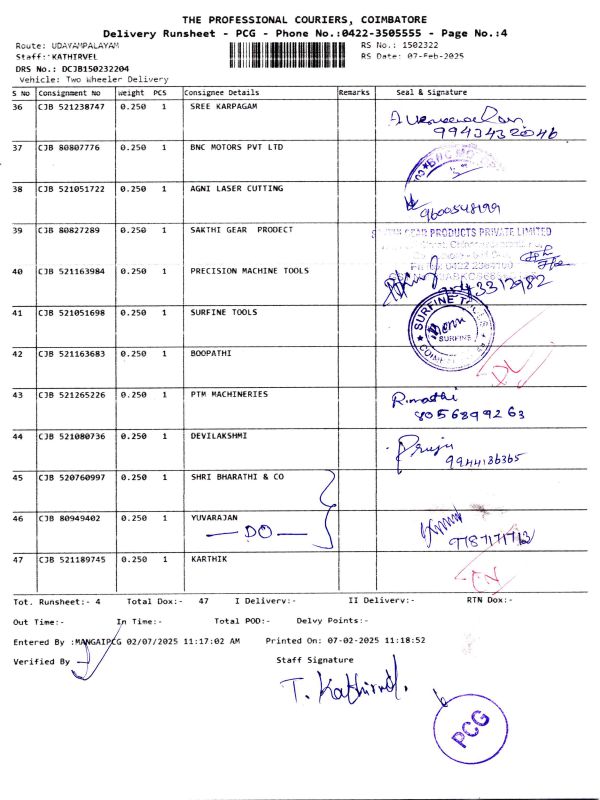 THE PROFESSIONAL COURIERS, COIMBATORE
Delivery Runsheet - PCG - Phone No.:0422-3505555 - Page No.:4
Route: UDAYAMPALAYAM RS No.: 1502322
Staff: KATHIRVEL RS Date: 07-Feb-2025
DRS No.: DCJB150232204
Vehicle: Two Wheeler Delivery
S No Consignment No Weight PCS Consignee Details Remarks Seal & Signature
36 CJB 521238747 0.250 1 SREE KARPAGAM
9943432046
37 CJB 80807776 0.250 1 BNC MOTORS PVT LTD
BNC MO
38 CJB 521051722 0.250 1 AGNI LASER CUTTING
9600548199
39 CJB 80827289 0.250 1 SAKTHI GEAR PRODECT
GEAR PRODUCTS PRIVATE LIMITED
40 CJB 521163984 0.250 1 PRECISION MACHINE TOOLS
43312982
41 CJB 521051698 0.250 1 SURFINE TOOLS
SURFINE
SURFINE
42 CJB 521163683 0.250 1 BOOPATHI
DL
43 CJB 521265226 0.250 1 PTM MACHINERIES
R.mathi
8056899263
44 CJB 521080736 0.250 1 DEVILAKSHMI
9944136365
45 CJB 520760997 0.250 1 SHRI BHARATHI & CO
46 CJB 80949402 0.250 1 YUVARAJAN
— DO —
9787171713
47 CJB 521189745 0.250 1 KARTHIK
Tot. Runsheet:- 4 Total Dox:- 47 I Delivery:- II Delivery:- RTN Dox:-
Out Time:- In Time:- Total POD:- Delvy Points:-
Entered By :MANGAIPCG 02/07/2025 11:17:02 AM Printed On: 07-02-2025 11:18:52
Verified By Staff Signature
T. Kathirvel.
PCG